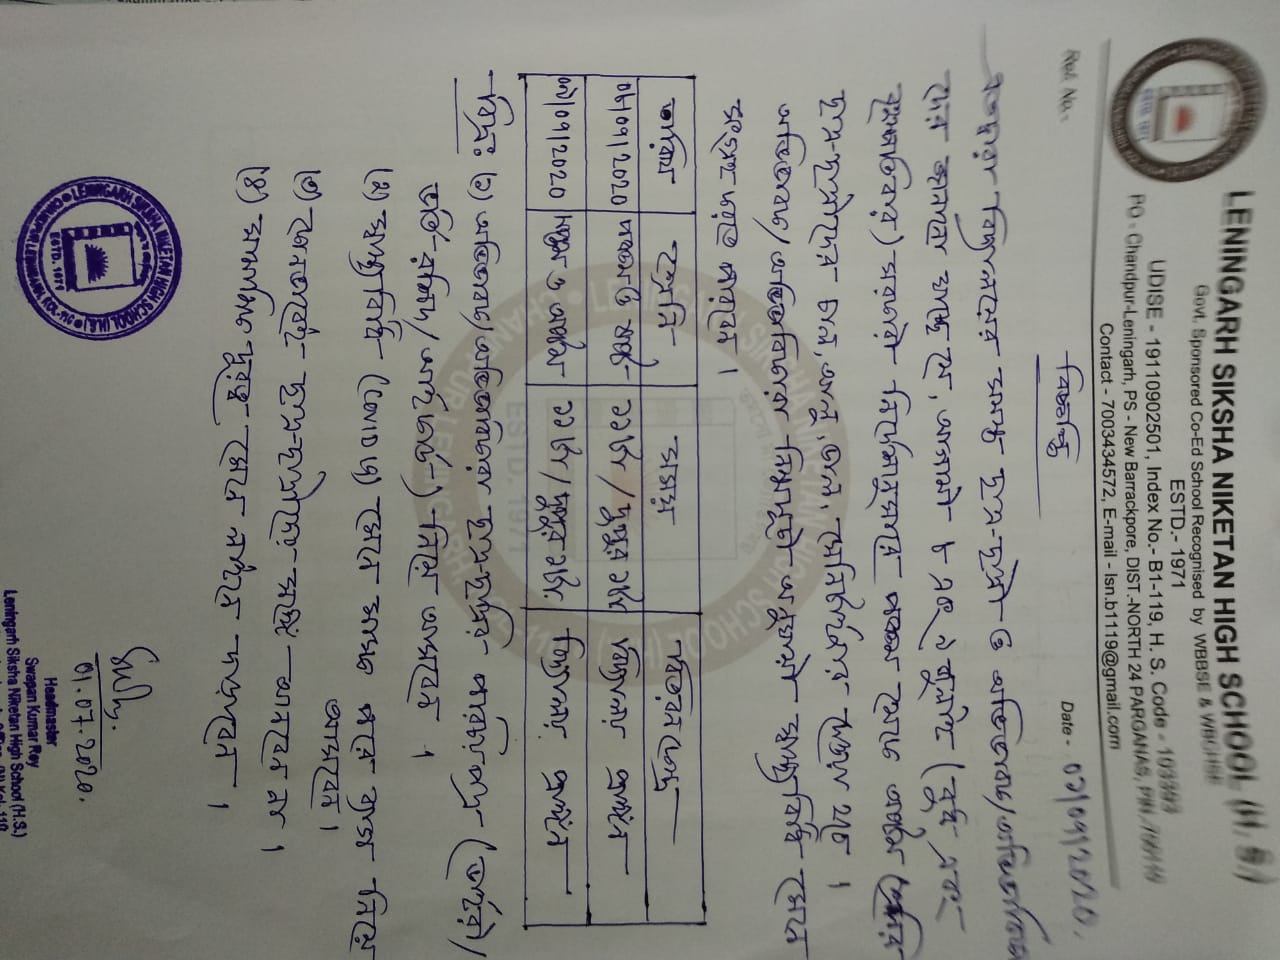 LENINGARH SIKSHA NIKETAN HIGH SCHOOL (H. S.)
Govt. Sponsored Co-Ed School Recognised by WBBSE & WBCHSE
ESTD.- 1971
UDISE - 19110902501, Index No.- B1-119, H. S. Code - 103393
PO - Chandpur-Leningarh, PS - New Barrackpore, DIST.-NORTH 24 PARGANAS, PIN
Contact - 7003434572, E-mail - lsn.b1119@gmail.com
Ref. No.- Date - 01/07/2020.
বিজ্ঞপ্তি
এতদ্বারা বিদ্যালয়ের সমস্ত ছাত্র-ছাত্রী ও অভিভাবক/অভিভাবিকা
দের জানানো যাচ্ছে যে, আগামী ৮ এবং ৯ জুলাই (বুধ এবং
বৃহস্পতিবার) সরকারী নির্দেশানুসারে পঞ্চম থেকে অষ্টম শ্রেণির
ছাত্র-ছাত্রীদের চাল, আলু, ডাল, স্যানিটাইজার দেওয়া হবে ।
অভিভাবক/অভিভাবিকারা নিম্নসূচী অনুযায়ী স্বাস্থ্যবিধি মেনে
তারিখ শ্রেণি সময় পরিবেশ
08/07/2020 পঞ্চম ও ষষ্ঠ ১১টা / দুপুর ১টা বিদ্যালয় প্রাঙ্গণ
09/07/2020 সপ্তম ও অষ্টম ১১টা / দুপুর ১টা বিদ্যালয় প্রাঙ্গণ
বিঃদ্রঃ (১) অভিভাবক/অভিভাবিকারা ছাত্র-ছাত্রীর
নিয়ে আসবেন ।
(২) স্বাস্থ্যবিধি (COVID 19) মেনে মাস্ক পরে ব্যাগ নিয়ে
আসবেন ।
(৩) কোনভাবেই ছাত্র-ছাত্রীরা সঙ্গে আসবে না ।
(৪) সামাজিক দূরত্ব মেনে লাইনে দাঁড়াবেন ।
01.07.2020.
Headmaster
Swapan Kumar Roy
Leningarh Siksha Niketan High School (H.S.)
LENINGARH SIKSHA NIKETAN HIGH SCHOOL (H.S.)
ESTD. 1971